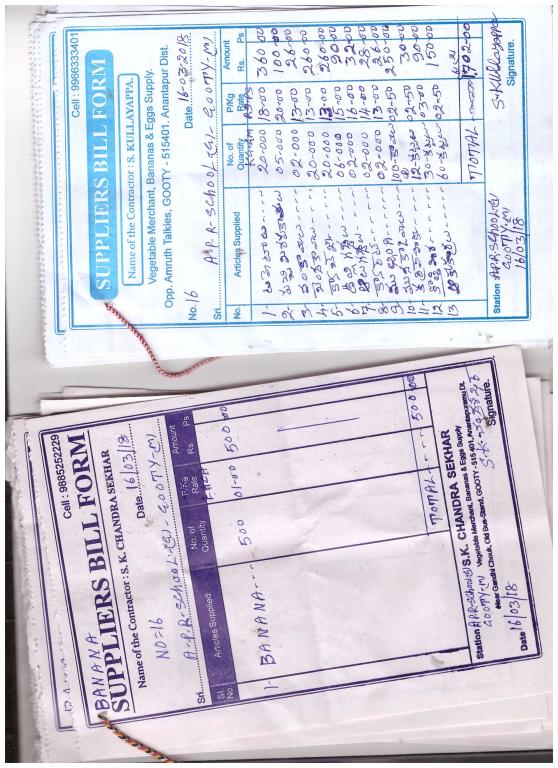 Cell : 9966333401
SUPPLIERS BILL FORM
Name of the Contractor : S. KULLAYAPPA.
Vegetable Merchant, Bananas & Eggs Supply.
Opp. Amruth Talkies, GOOTY - 515401. Anantapur Dist.
No. 16 Date 16-03-2018
Sri. A.P.R-SCHOOL-(G)-GOOTY-(M)
No. Articles Supplied No. of Quantity P/Kg Rate Amount Rs. Ps
1- 20-000 18-00 360-00
2- 05-000 20-00 100-00
3- 02-000 13-00 26-00
4- 20-000 13-00 260-00
5- 20-000 13-00 260-00
6- 06-000 15-00 90-00
7- 02-000 16-00 32-00
8- 02-000 14-00 28-00
9- 02-000 13-00 26-00
10- 100- 02-50 250-00
11- 12- 02-50 30-00
12 30- 03-00 90-00
13 60- 02-50 150-00
TTOTAL 1702-00
Station A.P.R SCHOOL(G)
GOOTY-(M)
16/03/18
S-Kullayappa
Signature.
Cell : 9885252229
BANANA
SUPPLIERS BILL FORM
Name of the Contractor : S.K. CHANDRA SEKHAR
NO=16 Date 16/03/18
Sri. A.P.R-SCHOOL-(G)-GOOTY-(M)
Sl. No Articles Supplied. No. of Quantity P/Kg Rate Amount Rs Ps
EACH
1- BANANA--- 500 01-00 500 00
TTOTAL---- 500 00
S.K. CHANDRA SEKHAR
Vegetable Merchant, Bananas & Eggs Supply
Near Gandhi Chouk, Old Bus-Stand, GOOTY - 515 401, Anantapuramu Dt.
Station A.P.R SCHOOL(G)
GOOTY-(M)
Date 16/03/18
Signature.